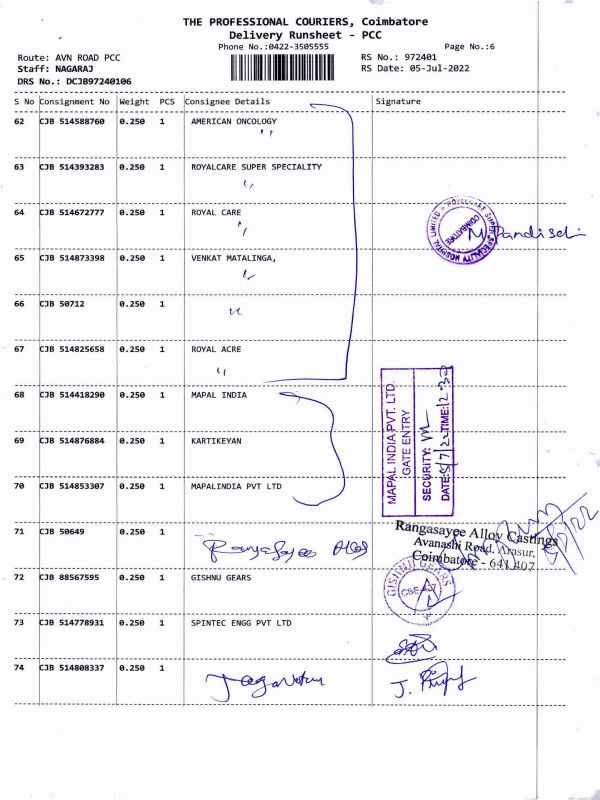 THE PROFESSIONAL COURIERS, Coimbatore
Delivery Runsheet - PCC
Phone No.:0422-3505555 Page No.:6
Route: AVN ROAD PCC RS No.: 972401
Staff: NAGARAJ RS Date: 05-Jul-2022
DRS No.: DCJB97240106
S No Consignment No Weight PCS Consignee Details Signature
62 CJB 514588760 0.250 1 AMERICAN ONCOLOGY
63 CJB 514393283 0.250 1 ROYALCARE SUPER SPECIALITY
64 CJB 514672777 0.250 1 ROYAL CARE
ROYALCARE SUPER SPECIALITY HOSPITAL LIMITED
COIMBATORE
M. Pandiseli
65 CJB 514873398 0.250 1 VENKAT MATALINGA,
66 CJB 50712 0.250 1
67 CJB 514825658 0.250 1 ROYAL ACRE
68 CJB 514418290 0.250 1 MAPAL INDIA
69 CJB 514876884 0.250 1 KARTIKEYAN
70 CJB 514853307 0.250 1 MAPALINDIA PVT LTD
MAPAL INDIA PVT. LTD.
GATE ENTRY
SECURITY: M
DATE: 5/7/22 TIME: 12.30
71 CJB 50649 0.250 1 Rangasayee Alloy
Rangasayee Alloy Castings
Avanashi Road, Arasur,
Coimbatore - 641 407
72 CJB 88567595 0.250 1 GISHNU GEARS
GISHNU GEARS
73 CJB 514778931 0.250 1 SPINTEC ENGG PVT LTD
74 CJB 514808337 0.250 1
J.